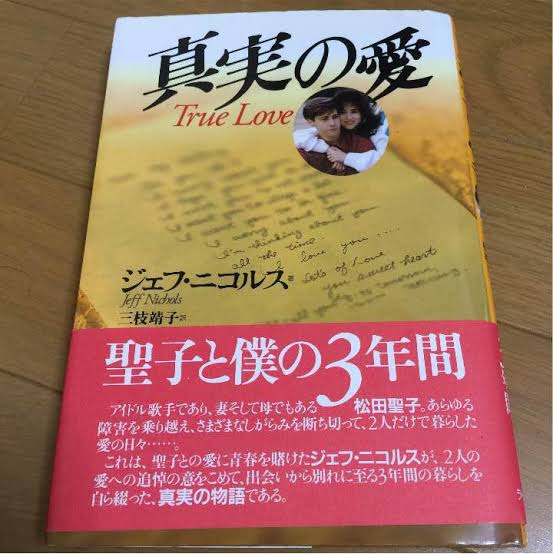 真実の愛
True Love
I worry about you
I'm thinking about you
all the time.
I love you.....
Lots of Love
you sweet heart
ジェフ・ニコルス著
Jeff Nichols
三枝靖子訳
聖子と僕の3年間
アイドル歌手であり、妻そして母でもある松田聖子。あらゆる
障害を乗り越え、さまざまなしがらみを断ち切って、2人だけで暮らした
愛の日々……。
これは、聖子との愛に青春を賭けたジェフ・ニコルスが、2人の
愛への追悼の意をこめて、出会いから別れに至る3年間の暮らしを
自ら綴った、真実の物語である。